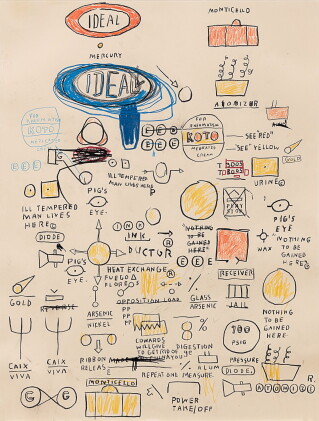 IDEAL
MONTICELLO
MERCURY
IDEAL
ATOMIZER
FOR
KOTO
EEE
EEE
EEE
FOR
KOTO
MEDICATED
CREAM
SEE "RED"
SEE "YELLOW"
GOLD
ILL TEMPERED
MAN LIVES
HERE©
DIODE
PIG'S
EYE
ILL TEMPERED
MAN LIVES
URINE©
PIG'S
EYE
INK
"NOTHING
TO BE
GAINED
HERE"
WAX
"NOTHING
TO BE
GAINED
HERE"
DUCTOR
EEE
PIG'S
EYE
HEAT EXCHANGE
FUEGO
FLORES
RECEIVER
GOLD
OPPOSITION LOAD
GLASS
ARSENIC
JAIL
ARSENIC
NICKEL
PP
PP
PP
NOTHING
TO BE
GAINED
HERE
100
PSIG
CAIX
VIVA
CAIX
VIVA
RIBBON
RELEASE
COWARDS
WILL GIVE
TO GET RID OF
YOU
DIGESTION
%
ALUM
PRESSURE
DIODE
REPEAT ONE MEASURE
G G
MONTICELLO
POWER
TAKE/OFF
R
ATOMIZER